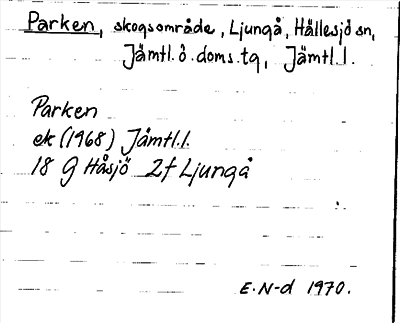 Parken, skogsområde, Ljungå, Hällesjö sn,
Jämtl.ö.doms.tg, Jämtl.l.
Parken
ek (1968) Jämtl.l.
18 G Håsjö 2f Ljungå
E.N-d 1970.